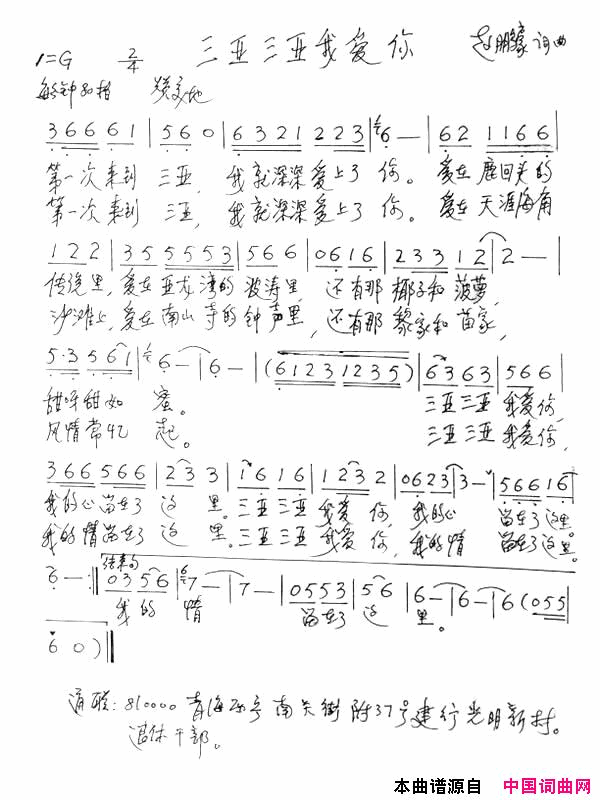 三亚三亚我爱你
1=G 2/4 赵鹏 词曲
每分钟 拍
3 6 6 6 6 1 | 5 6 0 | 6 3 2 1 2 2 3 | 6 — | 6 2 1 1 6 6 |
第一次来到 三亚，我就深深爱上了 你。爱在 鹿回头的
第一次来到 三亚，我就深深爱上了 你。爱在 天涯海角
1 2 2 | 3 5 5 5 5 5 3 | 5 6 6 | 0 6 1 6 | 2 3 3 1 2 | 2 — |
传说里，爱在亚龙湾的 波涛里，还有那 椰子和 菠萝，
沙滩上，爱在南山寺的 钟声里，还有那 黎家和 苗家，
5·3 5 6 1 | 6 — | 6 — | (6 1 2 3 1 2 3 5) | 6 3 6 3 | 5 6 6 |
甜呀甜如 蜜。 三亚三亚 我爱你，
风情常忆 起。 三亚三亚 我爱你，
3 6 6 5 6 6 | 2 3 3 | 1 6 1 6 | 1 2 3 2 | 0 6 2 3 | 3 — | 5 6 6 1 6 |
我的心留在了 这 里。三亚三亚 我爱 你，我的心 留在了这里。
我的情留在了 这 里。三亚三亚 我爱 你，我的情 留在了这里。
结束句
6 — :‖ 0 3 5 6 | 7 — | 7 — | 0 5 5 3 | 5 6 | 6 — | 6 — | 6 (0 5 5
我的 情 留在了 这 里。
6 0) ‖
通联：810000 青海西宁 南关街 附37号建行光明新村。
退休干部。
本曲谱源自 中国词曲网